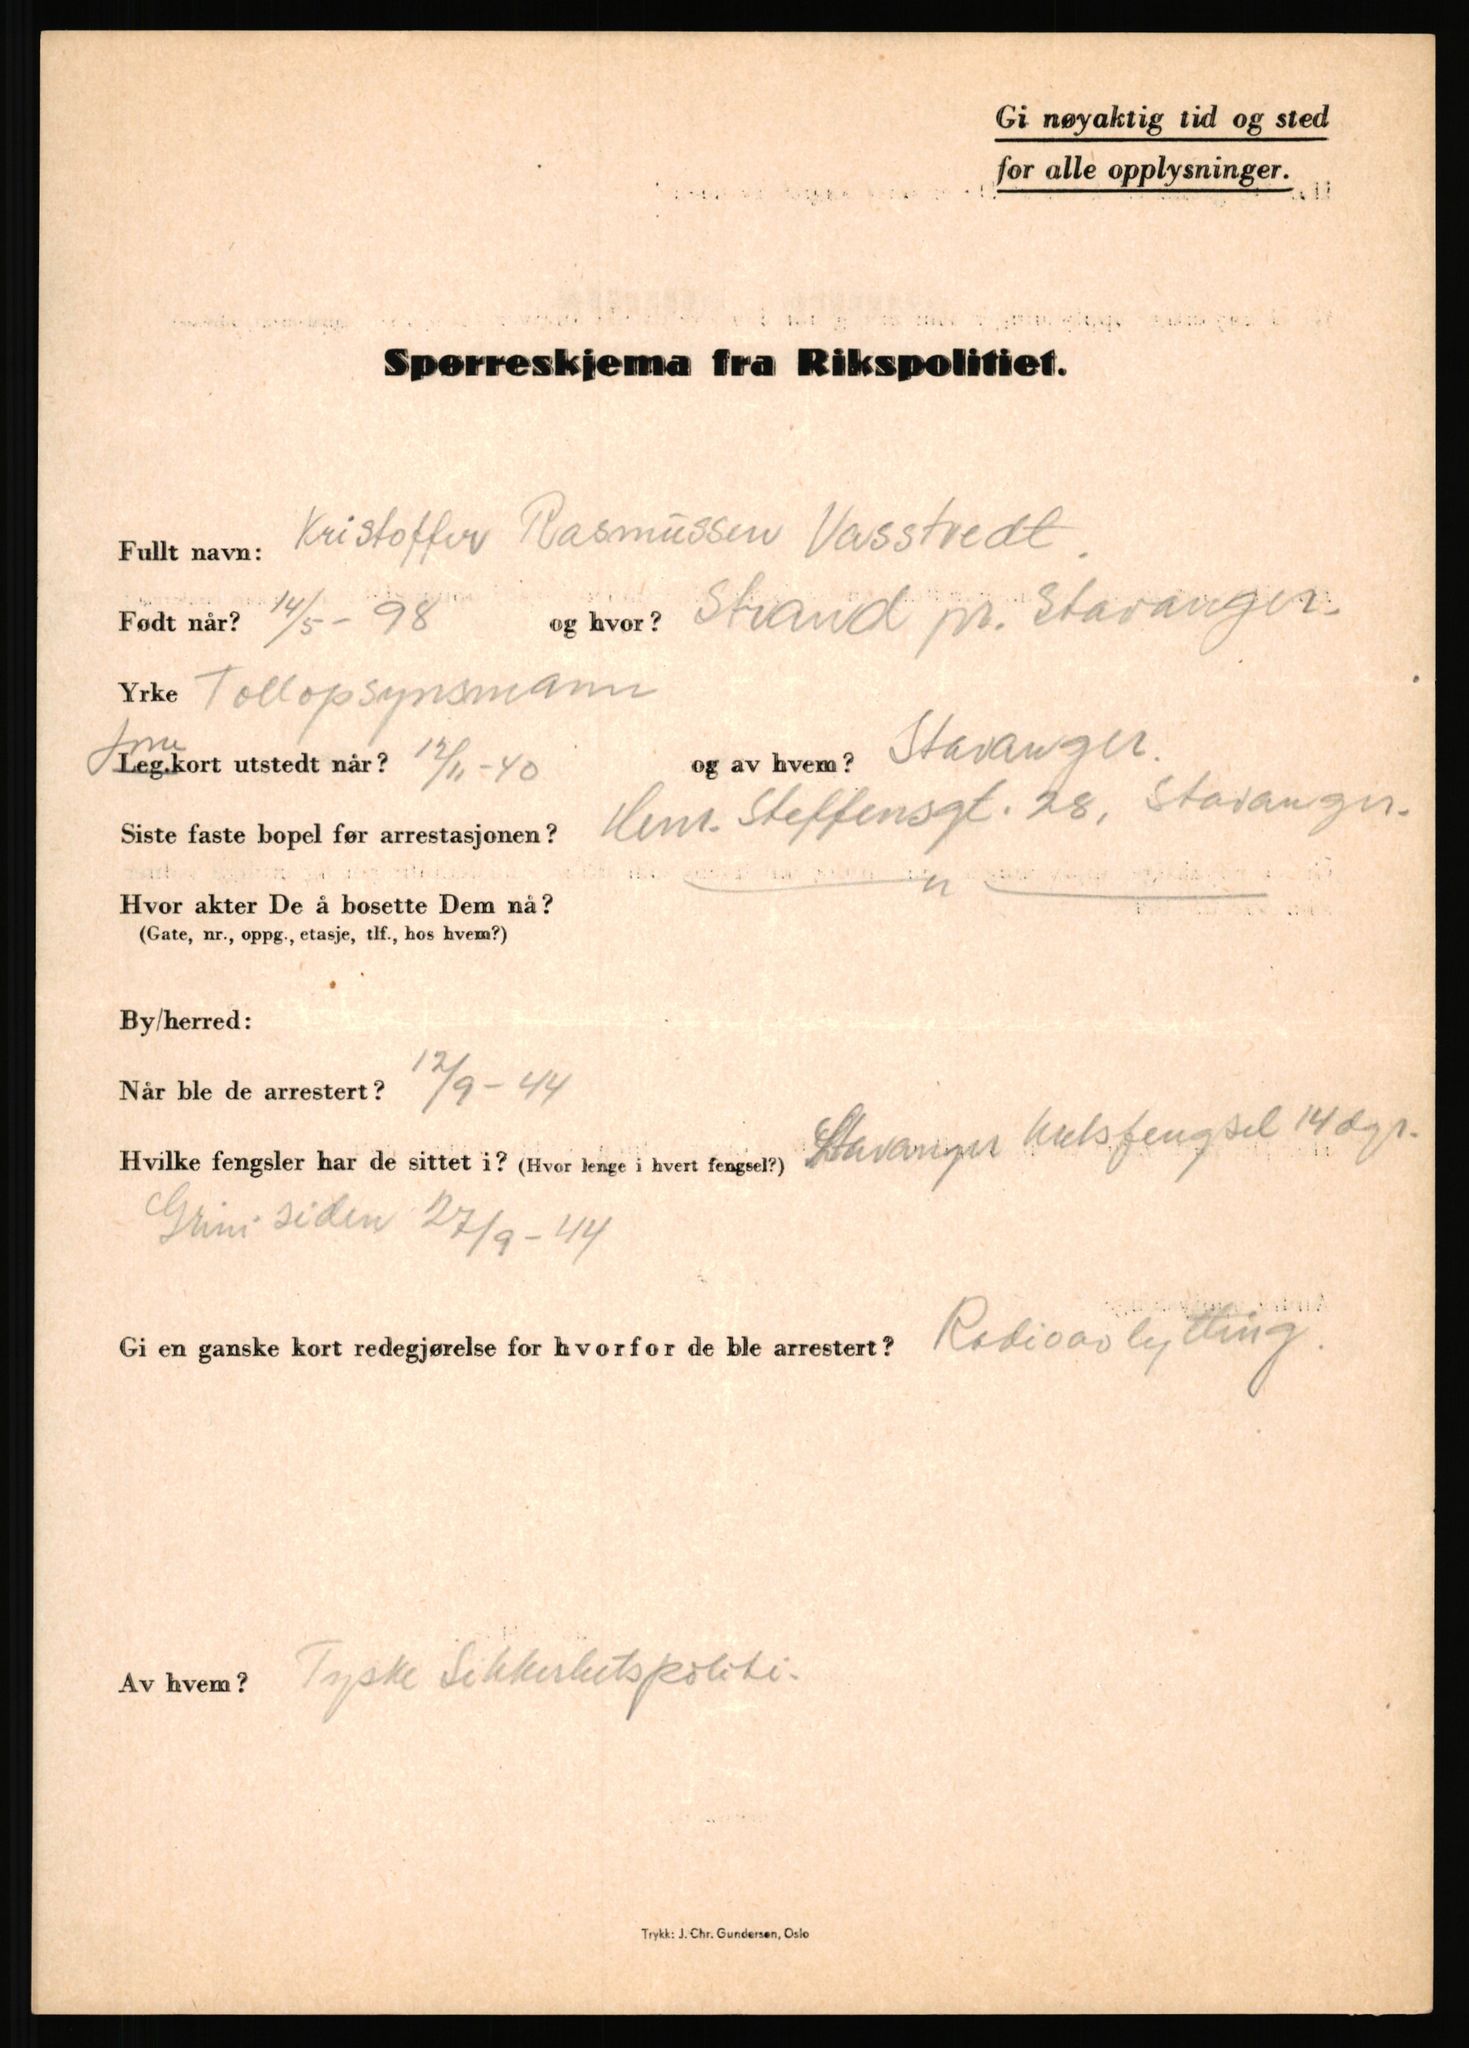 Gi nøyaktig tid og sted
for alle opplysninger.
Spørreskjema fra Rikspolitiet.
Fullt navn: Kristoffer Rasmussen Vasstvedt.
Født når? 14/5 - 98 og hvor? Strand pr. Stavanger.
Yrke Tollopsynsmann
Leg.kort utstedt når? 12/11 - 40 og av hvem? Stavanger.
Siste faste bopel før arrestasjonen? Henr. Steffensgt. 28, Stavanger.
Hvor akter De å bosette Dem nå? — " —
(Gate, nr., oppg., etasje, tlf., hos hvem?)
By/herred:
Når ble de arrestert? 12/9 - 44
Hvilke fengsler har de sittet i? (Hvor lenge i hvert fengsel?) Stavanger kretsfengsel 14 dgr.
Grini siden 27/9 - 44
Gi en ganske kort redegjørelse for hvorfor de ble arrestert? Radioavlytting.
Av hvem? Tyske Sikkerhetspoliti.
Trykk: J. Chr. Gundersen, Oslo